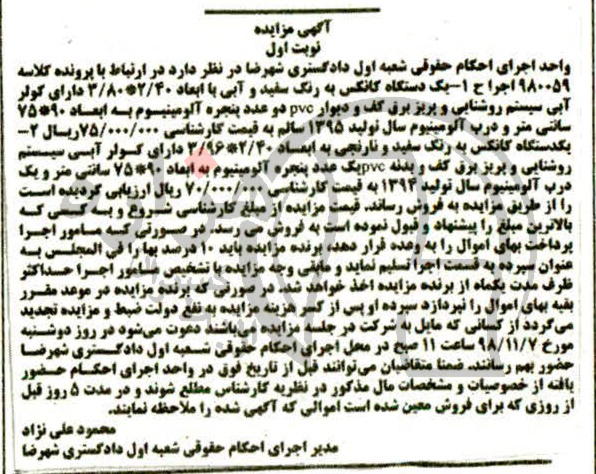 آگهی مزایده
نوبت اول
واحد اجرای احکام حقوقی شعبه اول دادگستری شهرضا در نظر دارد در ارتباط با پرونده کلاسه
۹۸۰۰۵۹ اجرا ح ۱-یک دستگاه کانکس به رنگ سفید و آبی با ابعاد ۲/۴۰*۳/۸۰ دارای کولر
آبی سیستم روشنایی و پریز برق کف و دیوار pvc دو عدد پنجره آلومینیوم به ابعاد ۹۰*۷۵
سانتی متر و درب آلومینیوم سال تولید ۱۳۹۵ سالم به قیمت کارشناسی ۷۵/۰۰۰/۰۰۰ریال ۲-
یکدستگاه کانکس به رنگ سفید و نارنجی به ابعاد ۲/۴۰*۳/۹۶ دارای کولر آبی سیستم
روشنایی و پریز برق کف و بدنه pvcیک عدد پنجره آلومینیوم به ابعاد ۹۰*۷۵ سانتی متر و یک
درب آلومینیوم سال تولید ۱۳۹۳ به قیمت کارشناسی ۷۰/۰۰۰/۰۰۰ ریال ارزیابی گردیده است
را از طریق مزایده به فروش رساند. قیمت مزایده از مبلغ کارشناسی شروع و به کسی که
بالاترین مبلغ را پیشنهاد و قبول نموده است به فروش می رسد. در صورتی که مامور اجرا
پرداخت بهای اموال را به وعده قرار دهد، برنده مزایده باید ۱۰ درصد بها را فی المجلس به
عنوان سپرده به قسمت اجرا تسلیم نماید و مابقی وجه مزایده با تشخیص مامور اجرا حداکثر
ظرف مدت یکماه از برنده مزایده اخذ خواهد شد. در صورتی که برنده مزایده در موعد مقرر
بقیه بهای اموال را نپردازد سپرده او پس از کسر هزینه مزایده به نفع دولت ضبط و مزایده تجدید
می‌گردد از کسانی که مایل به شرکت در جلسه مزایده می‌باشند دعوت می‌شود در روز دوشنبه
مورخ ۹۸/۱۱/۷ ساعت ۱۱ صبح در محل اجرای احکام حقوقی شعبه اول دادگستری شهرضا
حضور بهم رسانند. ضمنا متقاضیان می‌توانند قبل از تاریخ فوق در واحد اجرای احکام حضور
یافته از خصوصیات و مشخصات مال مذکور در نظریه کارشناس مطلع شوند و در مدت ۵ روز قبل
از روزی که برای فروش معین شده است اموالی که آگهی شده را ملاحظه نمایند.
محمود علی نژاد
مدیر اجرای احکام حقوقی شعبه اول دادگستری شهرضا